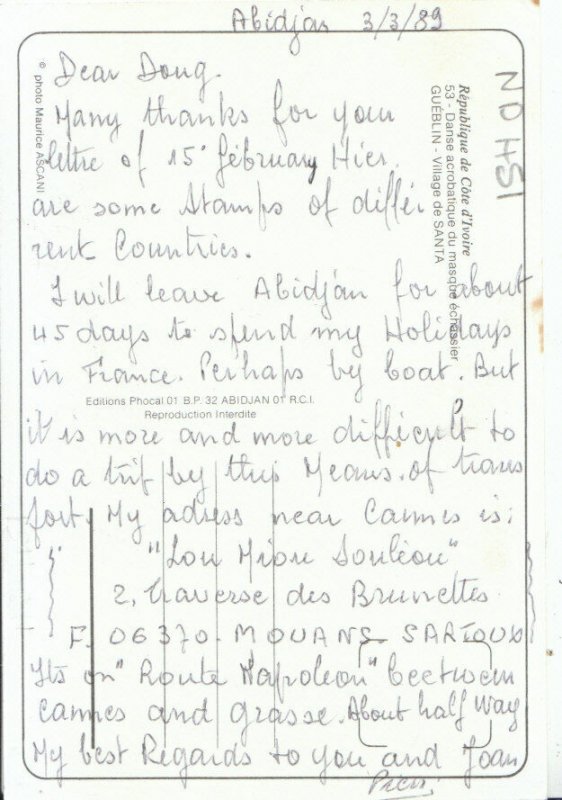 Abidjan 3/3/89
Dear Doug.
Many thanks for your
lettre of 15° february Hier.
are some stamps of diffé
rent Countries.
I will leave Abidjan for about
45 days to spend my Holidays
in France. Perhaps by boat. But
it is more and more difficult to
do a trip by this Means. of trans
port. My adress near Cannes is:
"Lou Miou Souléou"
2, Traverse des Brunettes
F. 06370. MOUANS SARTOUX
Its on "Route Napoléon" beetween
Cannes and Grasse. About half way
My best Regards to you and Joan
© photo Maurice ASCANI
République de Côte d'Ivoire
53 - Danse acrobatique du masque échassier
GUÉBLIN - Village de SANTA
Editions Phocal 01 B.P. 32 ABIDJAN 01 R.C.I.
Reproduction Interdite